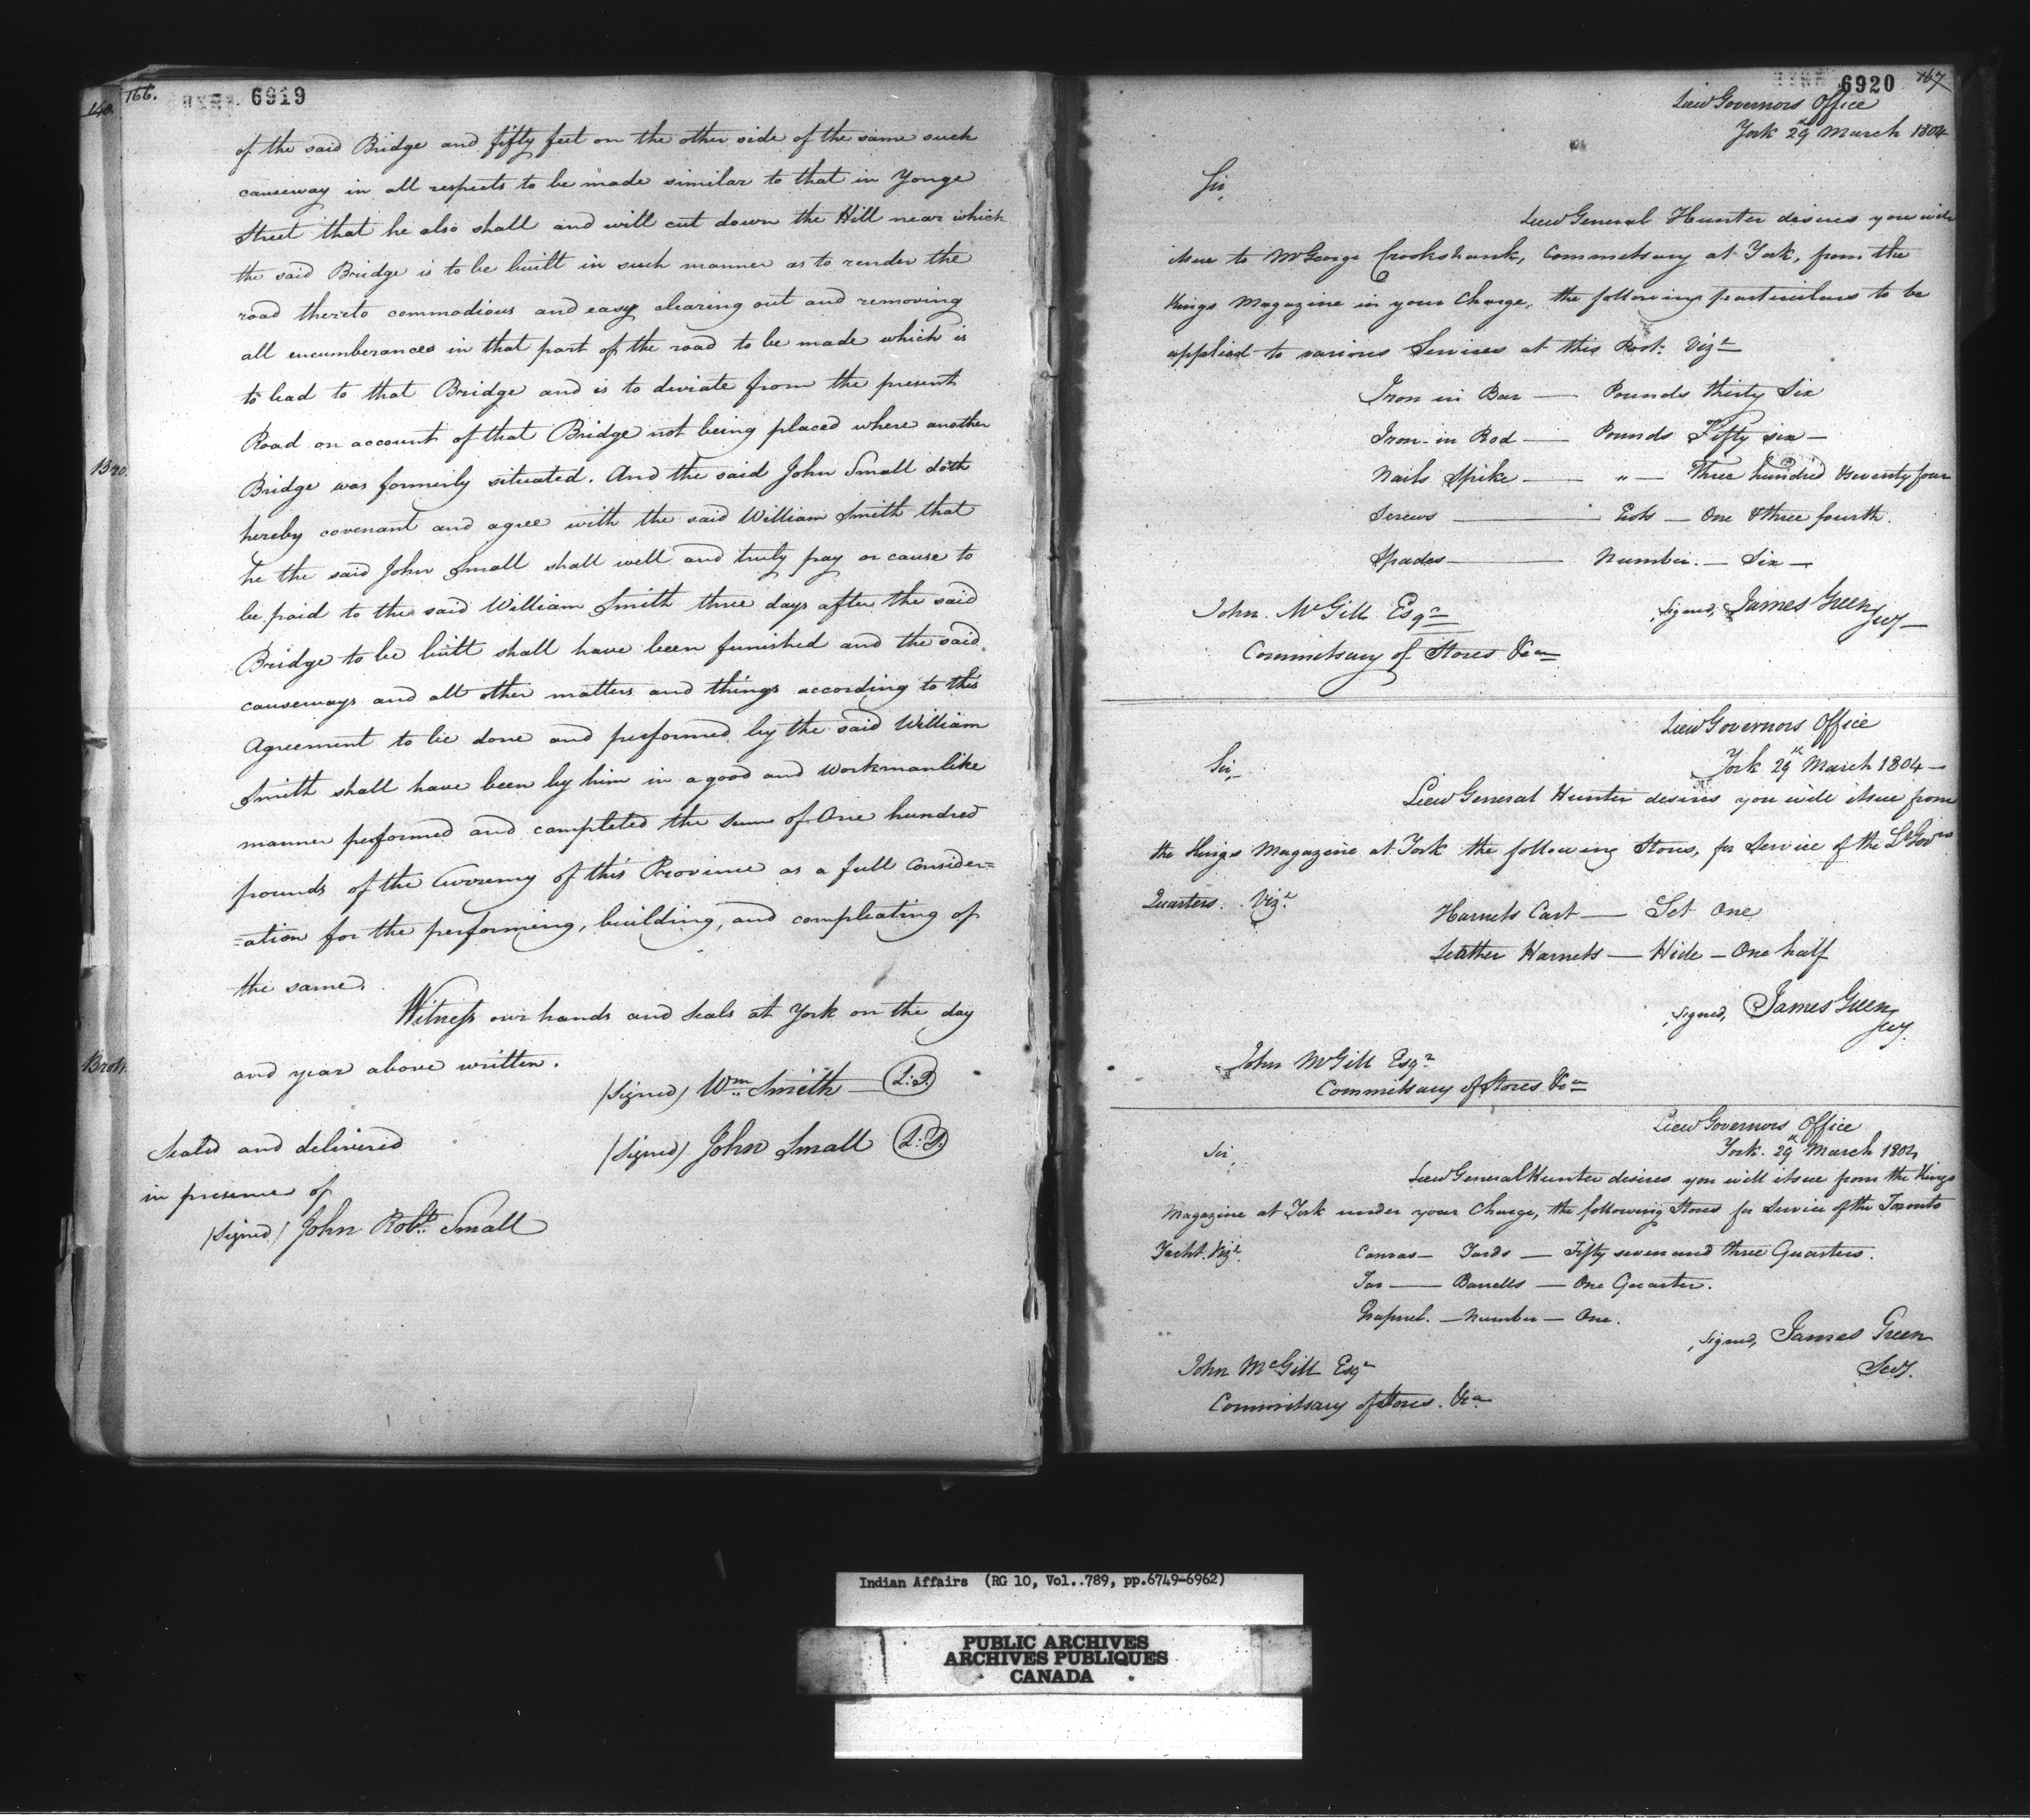 166.
6919
140.
of the said Bridge and fifty feet on the other side of the same such
causeway in all respects to be made similar to that in Yonge
Street that he also shall and will cut down the Hill near which
the said Bridge is to be built in such manner as to render the
road thereto commodious and easy clearing out and removing
all encumberances in that part of the road to be made which is
to lead to that Bridge and is to deviate from the present
Road on account of that Bridge not being placed where another
Bridge was formerly situated. And the said John Small doth
hereby covenant and agree with the said William Smith that
he the said John Small shall well and truly pay or cause to
be paid to the said William Smith three days after the said
Bridge to be built shall have been funished and the said
causeways and all other matters and things according to this
Agreement to be done and performed by the said William
Smith shall have been by him in a good and Workmanlike
manner performed and completed the Sum of One hundred
pounds of the Currency of this Province as a full Consider=
=ation for the performing, building, and compleating of
the same.
Witness our hands and Seals at York on the day
and year above written.
(Signed) Wm Smith L:S.
Sealed and delivered
(Signed) John Small L:S.
in presence of
(Signed) John Robt. Small
6920
167
Lieu Governors Office
York 29th March 1804
Sir,
Lieu General Hunter desires you will
issue to Mr George Crookshank, Commissary at York, from the
Kings Magazine in your Charge, the following particulars to be
applied to various Services at this Post: Vizt
Iron in Bar — Pounds thirty Six
Iron in Rod — Pounds Fifty six —
Nails Spike — " — Three hundred & seventy four
Screws — — One & three fourth.
Spades — Number. — Six —
Signed, James Green
Secy —
John McGill Esqr
Commissary of Stores &ca
Lieu Governors Office
York 29th March 1804 —
Sir,
Lieu General Hunter desires you will issue from
the Kings Magazine at York the following Stores, for Service of the Lt Govrs
Quarters. Vizt.
Harness Cart — Set One
Leather Harness — Hide — One half
Signed, James Green
Secy.
John McGill Esqr
Commissary of Stores &ca
Lieu Governors Office
York. 29th March 1804
Sir,
Lieu General Hunter desires you will issue from the Kings
Magazine at York under your Charge, the following Stores for Service of the Toronto
Yacht. Vizt.
Canvas — Yards — Fifty seven and three Quarters.
Tar — Barrells — One Quarter.
Grapnel. — Number — One.
Signed, James Green
Secy.
John McGill Esqr
Commissary of Stores. &ca
Indian Affairs (RG 10, Vol..789, pp.6749-6962)
PUBLIC ARCHIVES
ARCHIVES PUBLIQUES
CANADA